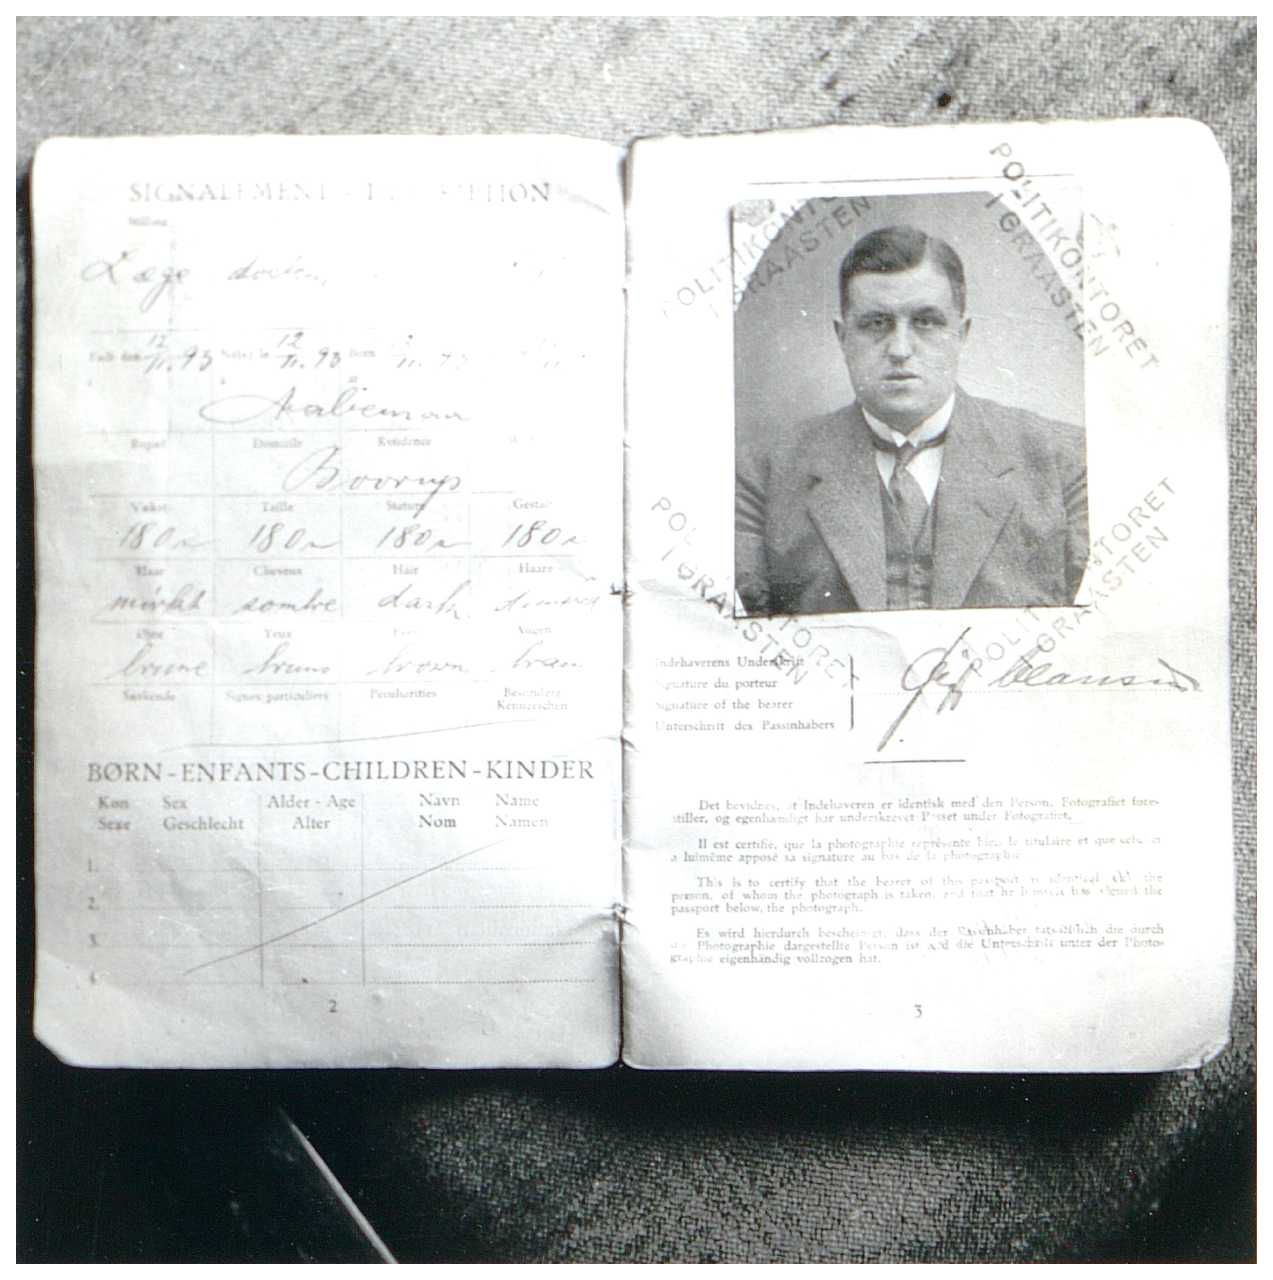 SIGNALEMENT
Stilling
Læge
Født den 12/11.93 Né(e) le 12/11.93 Born
Aabenraa
Bopæl Domicile Residence
Bovrup
Vækst Taille Stature Gestalt
180 180 180 180
Haar Cheveux Hair Haare
mörkt sombre dark
Øjne Yeux Augen
brune bruns brown
Særkende Signes particuliers Peculiarities Besondere
Kennzeichen
BØRN-ENFANTS-CHILDREN-KINDER
Køn Sex Alder - Age Navn Name
Sexe Geschlecht Alter Nom Namen
1.
2.
3.
4.
2
POLITIKONTORET
I GRAASTEN
POLITIKONTORET
I GRAASTEN
POLITIKONTORET
I GRAASTEN
POLITIKONTORET
I GRAASTEN
Indehaverens Underskrift
Signature du porteur
Signature of the bearer
Unterschrift des Passinhabers
Clausen
Det bevidnes, at Indehaveren er identisk med den Person, Fotografiet fore-
stiller, og egenhændigt har underskrevet Passet under Fotografiet.
Il est certifié, que la photographie représente bien le titulaire et que celui-ci
a luimême apposé sa signature au bas de la photographie.
This is to certify that the bearer of this passport is identical with the
person, of whom the photograph is taken, and that he himself has signed the
passport below the photograph.
Es wird hierdurch bescheinigt, dass der Passinhaber tatsächlich die durch
die Photographie dargestellte Person ist und die Unterschrift unter der Photo-
graphie eigenhändig vollzogen hat.
3